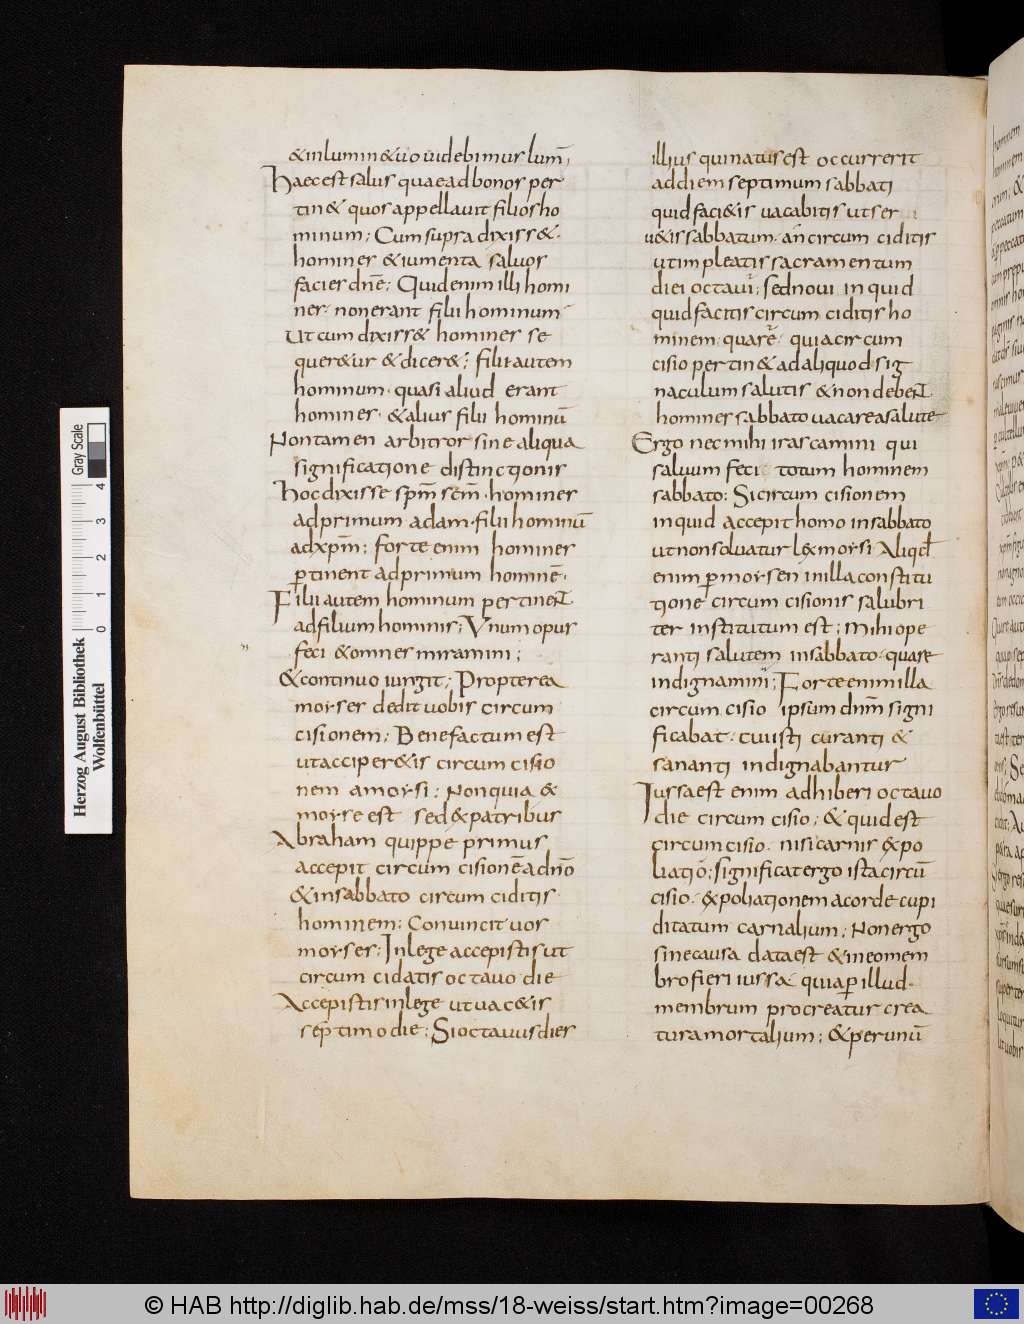 & in lumin& uo uidebimus lum̄;
Haec est salus quae ad bonos per
tin& quos appellauit filios ho
minum; Cum supra dixiss&
homines & iumenta saluos
facies dn̄e; Quid enim illi homi
nes· non erant filii hominum
Ut cum dixiss& homines se
quer&ur & dicer&; filii autem
hominum· quasi aliud erant
homines· & alius filii hominū
Non tamen arbitror sine aliqua
significatione distinctionis
Hoc dixisse sp̄m sc̄m· homines
ad primum adam· filii hominū
ad xp̄m; forte enim homines
ꝑtinent ad primum hominē·
Filii autem hominum pertinent
ad filium hominis; Unum opus
feci & omnes miramini;
& continuo iungit; Propterea
moyses dedit uobis circum
cisionem; Benefactum est
ut acciper&is circum cisio
nem a moysi; Non quia ex
moyse est sed ex patribus
Abraham quippe primus
accepit circum cisionē a dn̄o
& in sabbato circum ciditis
hominem; Conuincit uos
moyses; In lege accepistis ut
circum cidatis octauo die
Accepistis in lege ut uac&is
septimo die; Si octauus dies
illius qui natus est occurrerit
ad diem septimum sabbati
quid faci&is uacabitis ut ser
u&is sabbatum· an̄ circum ciditis
ut impleatis sacramentum
diei octaui; sed noui inquid
quid facitis circum ciditis ho
minem· quare· quia circum
cisio pertin& ad aliquod sig
naculum salutis & non debent
homines sabbato uacare a salute
Ergo nec mihi irascamini qui
saluum feci totum hominem
sabbato; Si circum cisionem
inquid accepit homo in sabbato
ut non soluatur lex moysi Aliqd̄
enim ꝑ moysen in illa constitu
tione circum cisionis salubri
ter institutum est; Mihi ope
ranti salutem in sabbato· quare
indignamini; Forte enim illa
circum cisio ipsum dn̄m signi
ficabat· cui isti curanti &
sananti indignabantur
Iussa est enim adhiberi octauo
die circum cisio; & quid est
circum cisio· nisi carnis expo
liatiō; significat ergo ista circū
cisio· expoliationem a corde cupi
ditatum carnalium; Non ergo
sine causa data est & in eo mem
bro fieri iussa quia ꝑ illud
membrum procreatur crea
tura mortalium; & per unū
Herzog August Bibliothek
Wolfenbüttel
Gray Scale
0 1 2 3 4
© HAB http://diglib.hab.de/mss/18-weiss/start.htm?image=00268